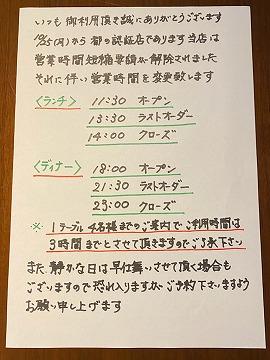 いつも御利用頂き誠にありがとうございます
10/25(月)から都の認証店であります当店は
営業時間短縮要請が解除されました
それに伴い営業時間を変更致します
〈ランチ〉 11:30 オープン
13:30 ラストオーダー
14:00 クローズ
〈ディナー〉 18:00 オープン
21:30 ラストオーダー
23:00 クローズ
※ 1テーブル4名様までのご案内でご利用時間は
3時間までとさせて頂きますのでご了承下さい
また、静かな日は早仕舞いさせて頂く場合も
ございますので恐れ入りますがご予約下さいますよう
お願い申し上げます